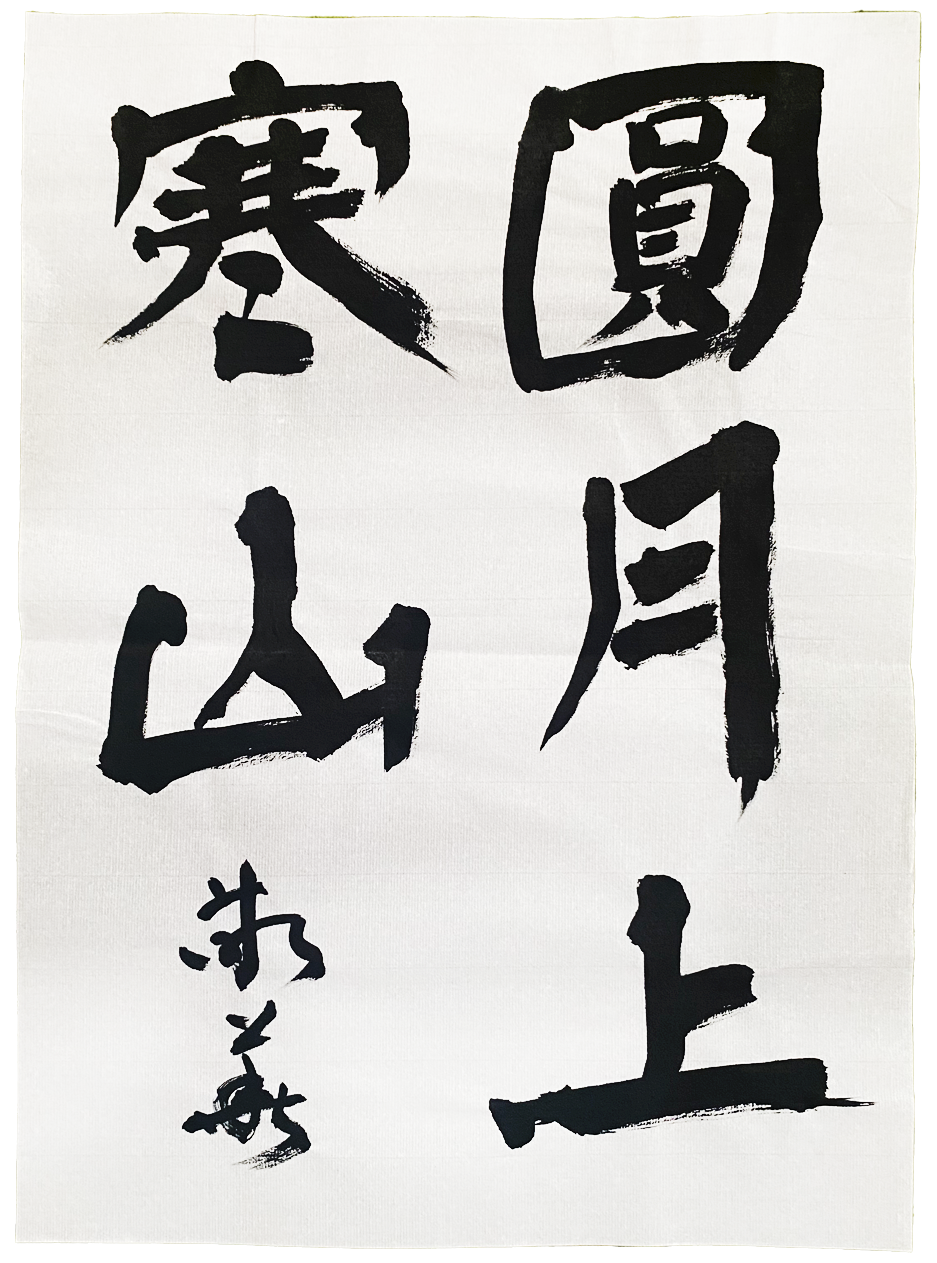 圓月上
寒山